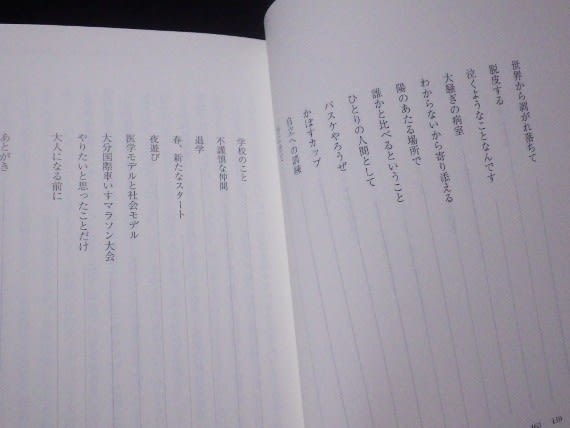 世界から剥がれ落ちて
脱皮する
泣くようなことなんです
大騒ぎの病室
わからないから寄り添える
陽のあたる場所で
誰かと比べるということ
ひとりの人間として
バスケやろうぜ
かぼすカップ
への
学校のこと
不謹慎な仲間
退学
春、新たなスタート
夜遊び
医学モデルと社会モデル
大分国際車いすマラソン大会
やりたいと思ったことだけ
大人になる前に
あとがき